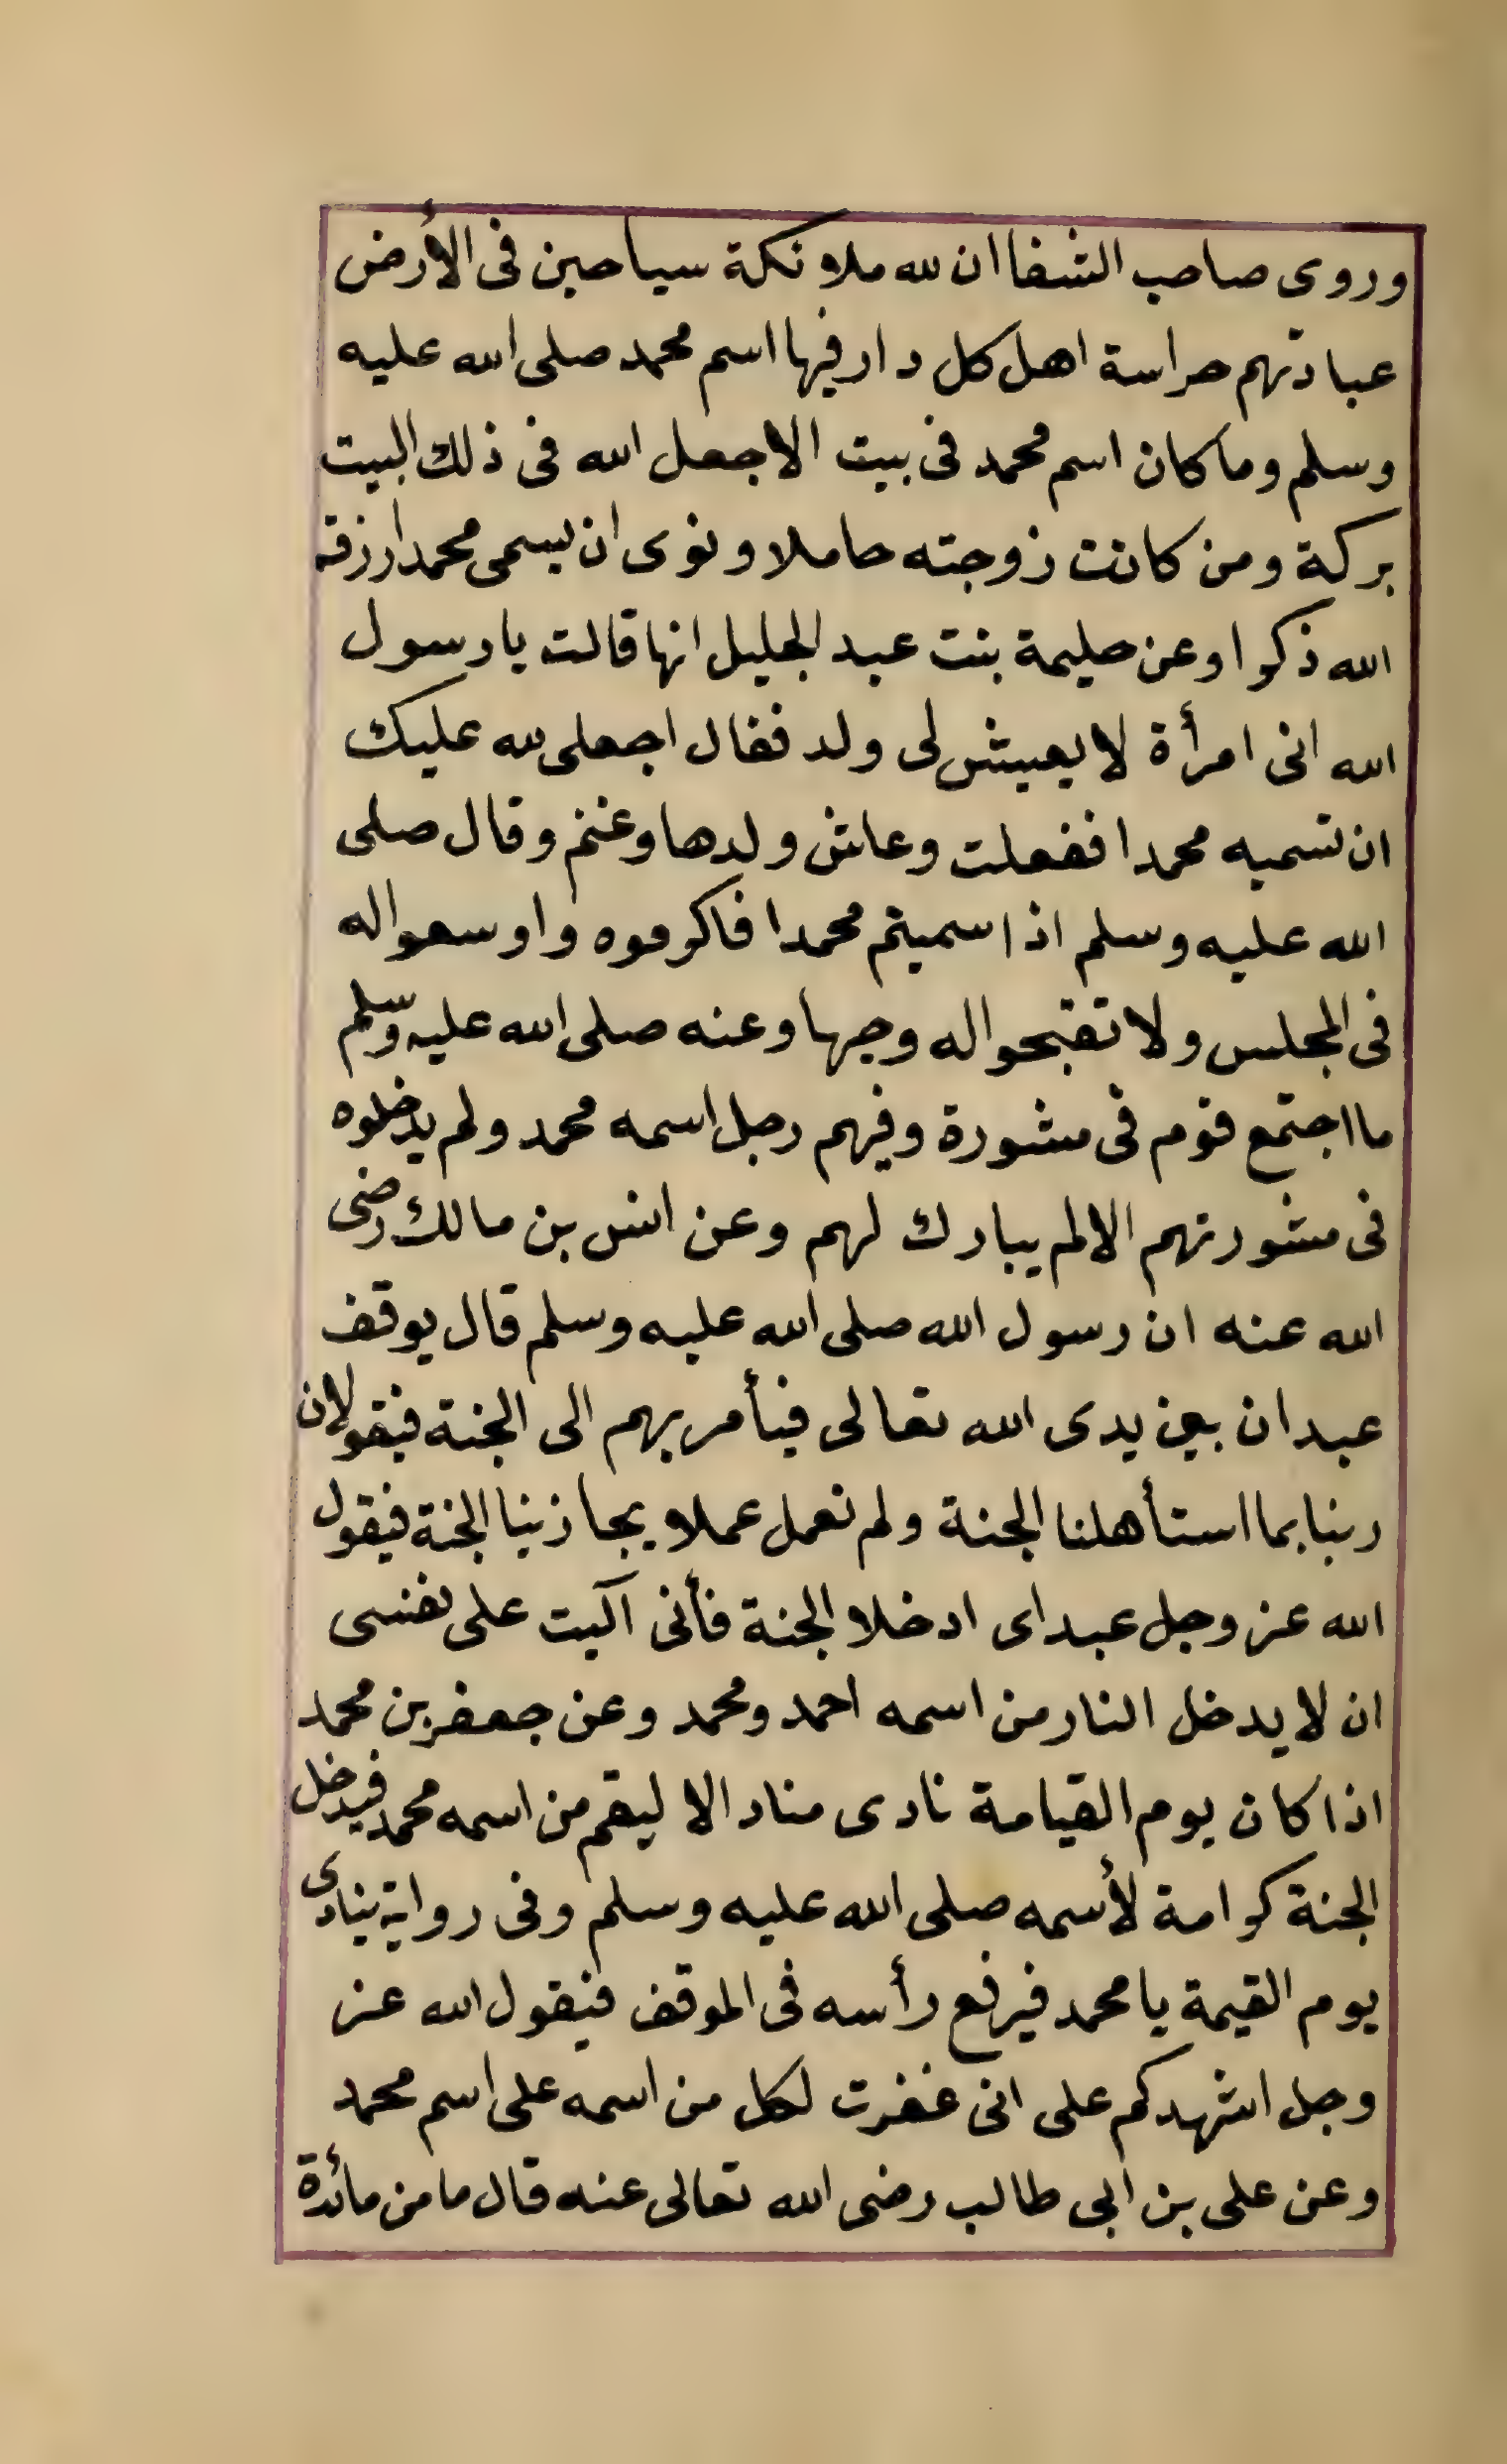 وروى صاحب الشفا ان لله ملائكة سياحين فى الأرض
عبادتهم حراسة اهل كل دار فيها اسم محمد صلى الله عليه
وسلم وما كان اسم محمد فى بيت الا جعل الله فى ذلك البيت
بركة ومن كانت زوجته حاملا ونوى ان يسمى محمدا رزقه
الله ذكرا وعن حليمة بنت عبد الجليل انها قالت يا رسول
الله انى امرأة لا يعيش لى ولد فقال اجعلى لله عليك
ان تسميه محمدا ففعلت وعاش ولدها وغنم وقال صلى
الله عليه وسلم اذا سميتم محمدا فاكرموه واوسعوا له
فى المجلس ولا تقبحوا له وجها وعنه صلى الله عليه وسلم
ما اجتمع قوم فى مشورة وفيهم رجل اسمه محمد ولم يدخلوه
فى مشورتهم الا لم يبارك لهم وعن انس بن مالك رضى
الله عنه ان رسول الله صلى الله عليه وسلم قال يوقف
عبدان بين يدى الله تعالى فيأمر بهم الى الجنة فيقولان
ربنا بما استأهلنا الجنة ولم نعمل عملا يجازينا الجنة فيقول
الله عز وجل عبداى ادخلا الجنة فأنى آليت على نفسى
ان لا يدخل النار من اسمه احمد ومحمد وعن جعفر بن محمد
اذا كان يوم القيامة نادى مناد الا ليقم من اسمه محمد فيدخل
الجنة كرامة لأسمه صلى الله عليه وسلم وفى رواية ينادى
يوم القيمة يا محمد فيرفع رأسه فى الموقف فيقول الله عز
وجل اشهدكم على انى غفرت لكل من اسمه على اسم محمد
وعن على بن ابى طالب رضى الله تعالى عنه قال ما من مائدة